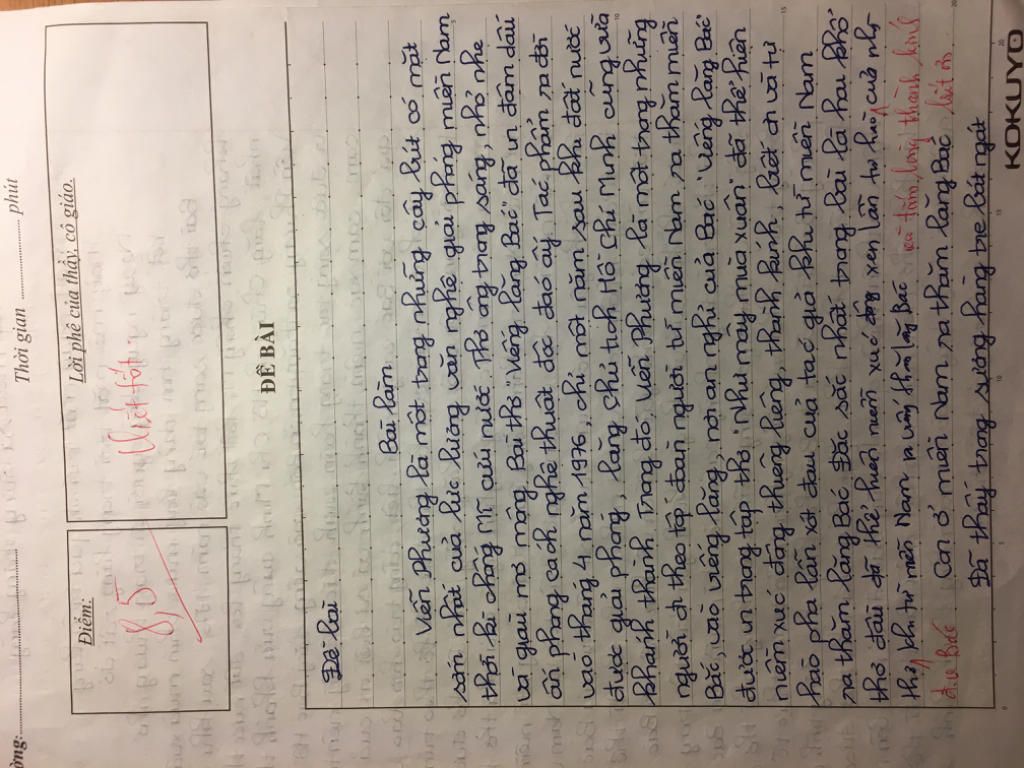 ường:
Thời gian ........ phút
Điểm:
Lời phê của thầy, cô giáo.
8,5
Viết tốt.
ĐỀ BÀI
Đề bài
Bài làm
Viễn Phương là một trong những cây bút có mặt
sớm nhất của lực lượng văn nghệ giải phóng miền Nam
thời kì chống Mĩ cứu nước. Thơ ông trong sáng, nhỏ nhẹ
và giàu mơ mộng. Bài thơ "Viếng lăng Bác" đã in đậm dấu
ấn phong cách nghệ thuật độc đáo ấy. Tác phẩm ra đời
vào tháng 4 năm 1976, chỉ một năm sau khi đất nước
được giải phóng, lăng Chủ tịch Hồ Chí Minh cũng vừa
khánh thành. Trong đó, Viễn Phương là một trong những
người đi theo tập đoàn người từ miền Nam ra thăm miền
Bắc, vào viếng lăng, nơi an nghỉ của Bác. "Viếng lăng Bác"
được in trong tập thơ "Như mây mùa xuân" đã thể hiện
niềm xúc động thiêng liêng, thành kính, biết ơn và tự
hào pha lẫn xót đau của tác giả khi từ miền Nam
ra thăm lăng Bác. Đặc sắc nhất trong bài là hai khổ
thơ đầu đã thể hiện niềm xúc động xen lẫn tự hào của nhà
và tấm lòng thành kính
thơ khi từ miền Nam ra viếng thăm lăng Bác
đưa Bác
biết ơn
Con ở miền Nam ra thăm lăng Bác
Đã thấy trong sương hàng tre bát ngát
KOKUYO